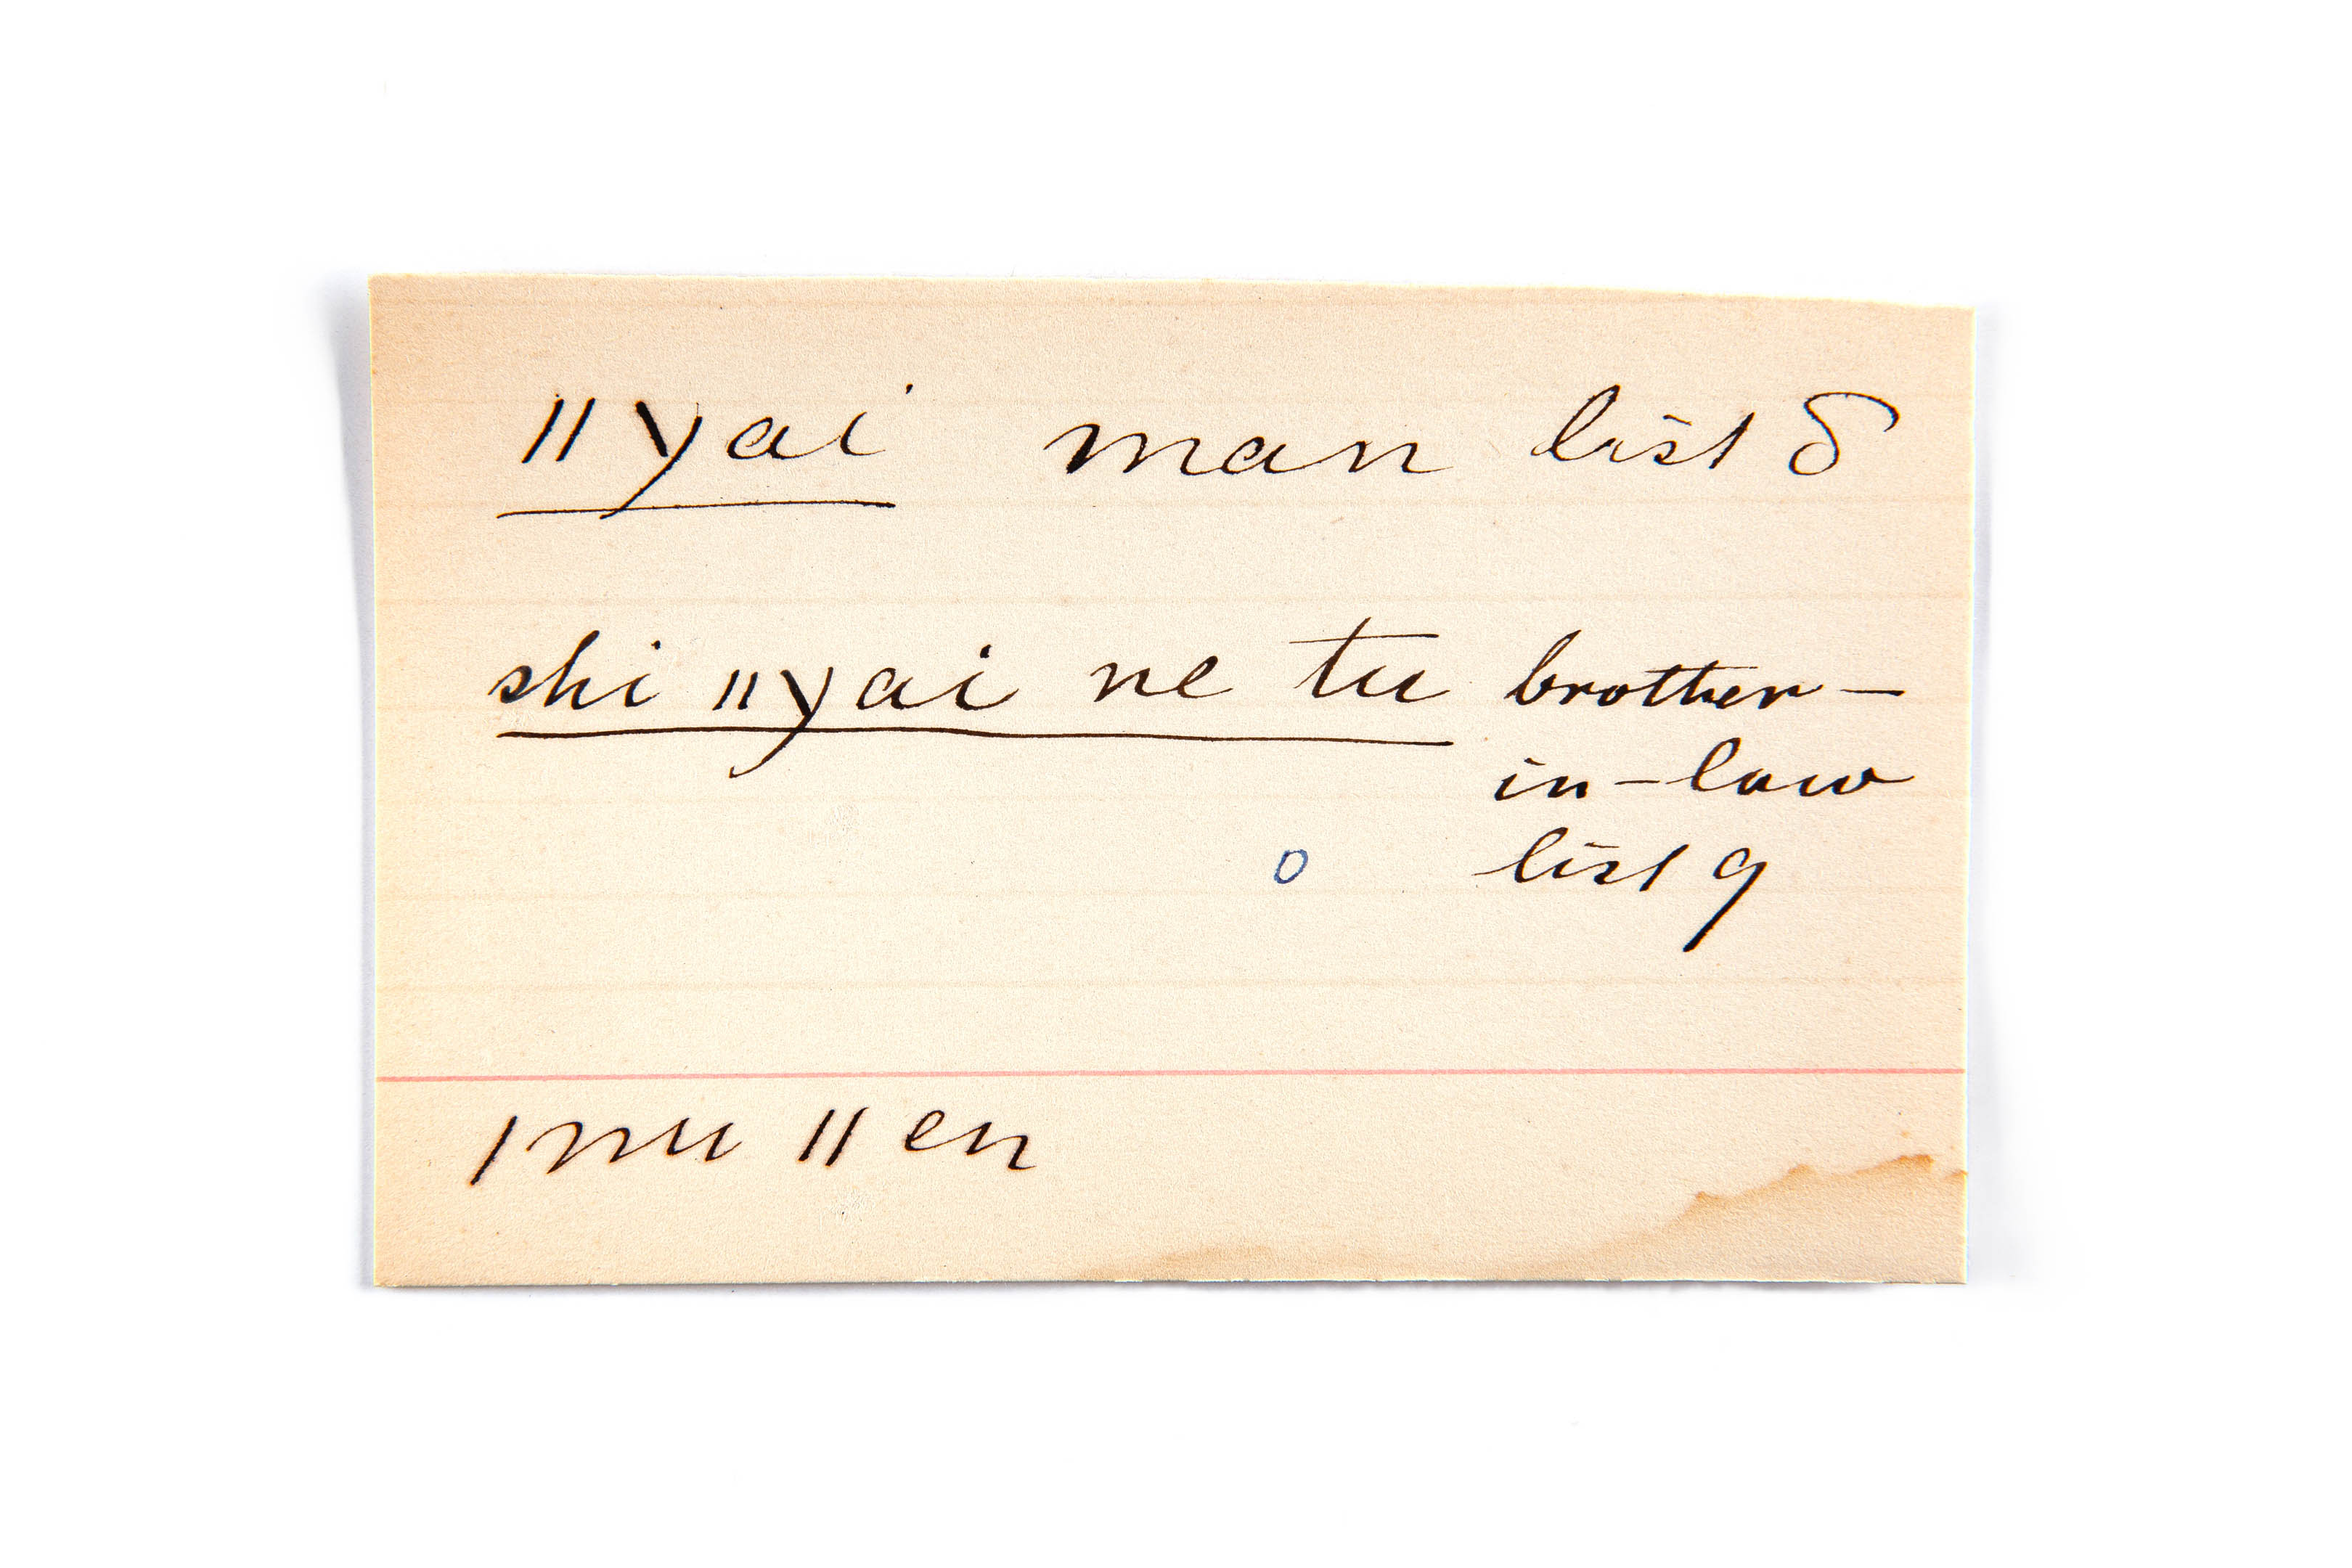 ǁyai man list 8
shi ǁyai ne tu brother-
in-law
o list 9
ǀnu ǁen